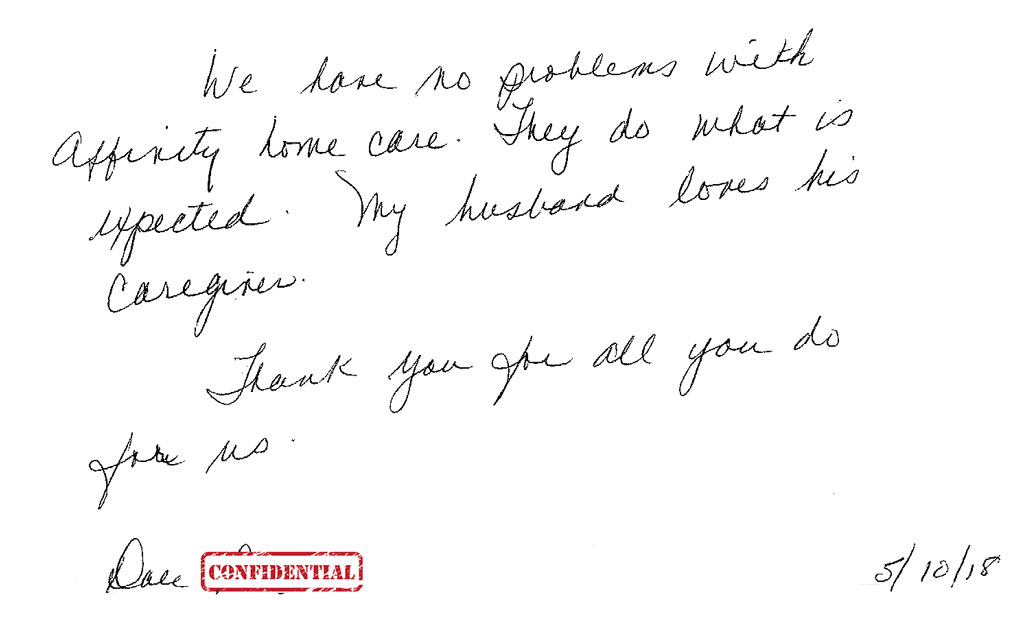 We have no problems with
Affinity home care. They do what is
expected. My husband loves his
Caregiver.
Thank you for all you do
for us.
CONFIDENTIAL
5/10/18